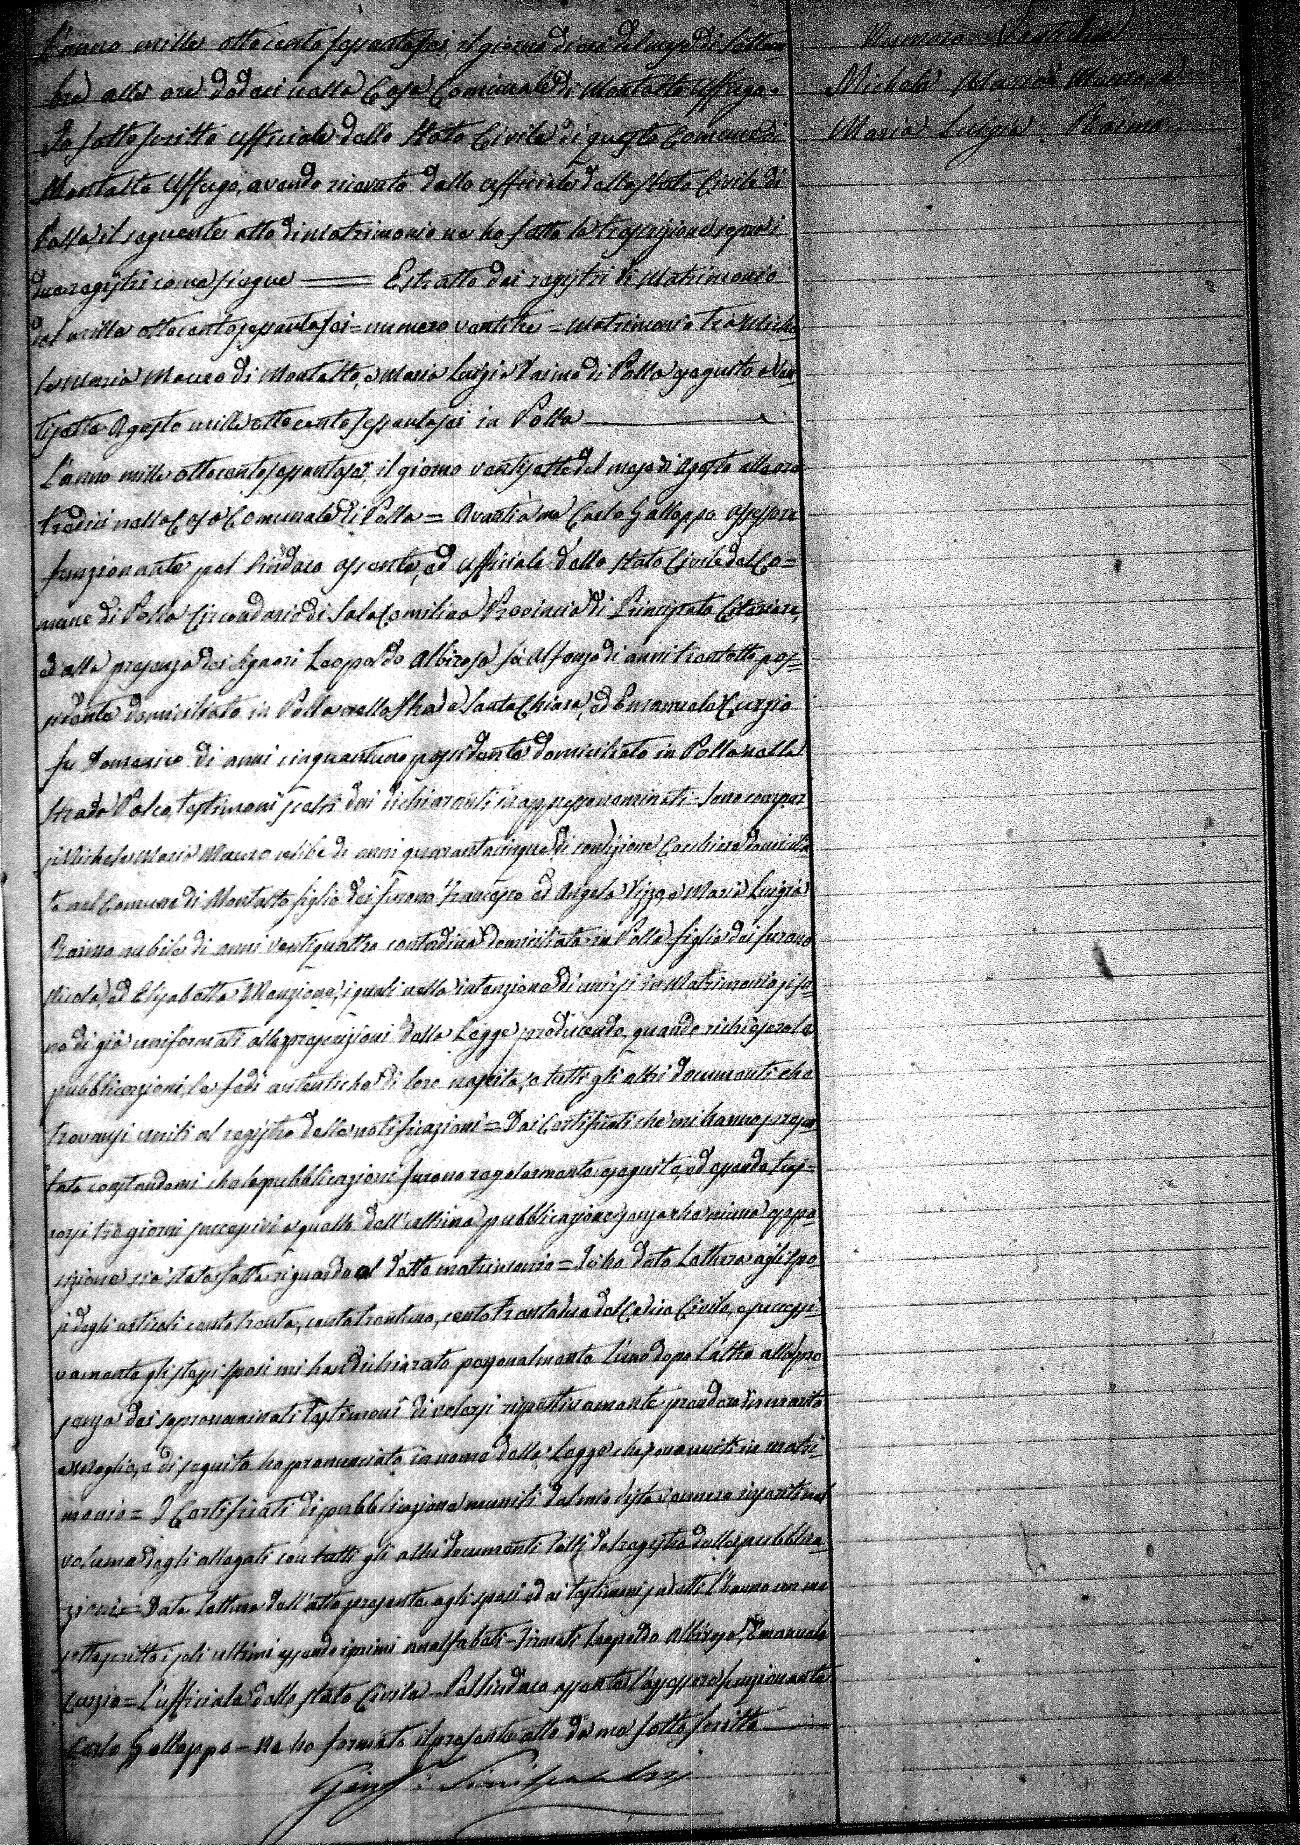 L'anno mille ottocento sessantasei, il giorno dieci del mese di Settem
bre alle ore dodici nella Casa Comunale di Montalto Uffugo.
Io sottoscritto ufficiale dello Stato Civile di questo Comune di
Montalto Uffugo, avendo ricevuto dallo ufficiale dello Stato Civile di
Polla il seguente atto di matrimonio ne ho fatto la trascrizione sopra i
due registri come siegue ═ Estratto dai registri di Matrimonio
del mille ottocentosessantasei = numero ventitre = Matrimonio tra Miche
le Maria Mauro di Montalto, e Maria Luigia Raimo di Polla eseguito a ven
tisette Agosto mille ottocento sessantasei in Polla
L'anno mille ottocentosessantasei, il giorno ventisette del mese di Agosto alle ore
tredici nella Casa Comunale di Polla = Avanti a me Carlo Galloppo Assessore
funzionante pel Sindaco assente, ed ufficiale dello Stato Civile del Co=
mune di Polla Circondario di Sala Consilina Provincia di Principato Citeriore,
ed alla presenza dei Signori Leopoldo Albirosa fu Alfonso di anni trentotto pos=
sidente domiciliato in Polla nella Strada Santa Chiara, ed Emanuele Curzio
fu Domenico di anni cinquantuno possidente domiciliato in Polla nella
strada testimoni scelti dai dichiaranti in appresso nominati - Sono compar
si Michele Maria Mauro celibe di anni quarantacinque di condizione domicilia
to nel Comune di Montalto figlio dei furono Francesco ed Angela Rizzo e Maria Luigia
Raimo nubile di anni ventiquattro contadina domiciliata in Polla figlia dei furono
Nicola ed Elisabetta Manzione, i quali nella intenzione di unirsi in Matrimonio si so
no di già uniformati alle prescrizioni della Legge producendo, quando richiesero le
pubblicazioni, le fedi autentiche di loro nascita, e tutti gli altri documenti che
trovansi uniti al registro delle notificazioni = Dai Certificati che mi hanno presen
tato constandomi che le pubblicazioni furono regolarmente eseguite, ed essendo tras=
corsi tre giorni successivi a quello dell'ultima pubblicazione senza che niuna oppo
sizione sia stata fatta riguardo al detto matrimonio = Io ho dato lettura agli spo
si degli articoli cento trenta, centotrentuno, cento trentadue del Codice Civile, e successi
vamente gli stessi sposi mi han dichiarato personalmente l'uno dopo l'altro alla pre
senza dei soprannominati testimoni di volersi rispettivamente prendere in marito
e moglie, e di seguito ho pronunciato in nome della Legge che sono uniti in matri
monio = I Certificati di pubblicazione muniti del mio visto vennero inseriti nel
volume degli allegati con tutti gli altri documenti dal registro delle pubblica
zioni = Data lettura dell'atto presente agli sposi ed ai testimoni l'hanno con me
sottoscritto i soli ultimi essendo i primi analfabeti - Firmati Leopoldo Emanuele
Curzio = L'ufficiale dello stato Civile - Pel Sindaco assente l'assessore funzionante
Carlo Galloppo - Ne ho formato il presente atto da me sottoscritto
Numero
Michele Maria Mauro e
Maria Luigia Raimo